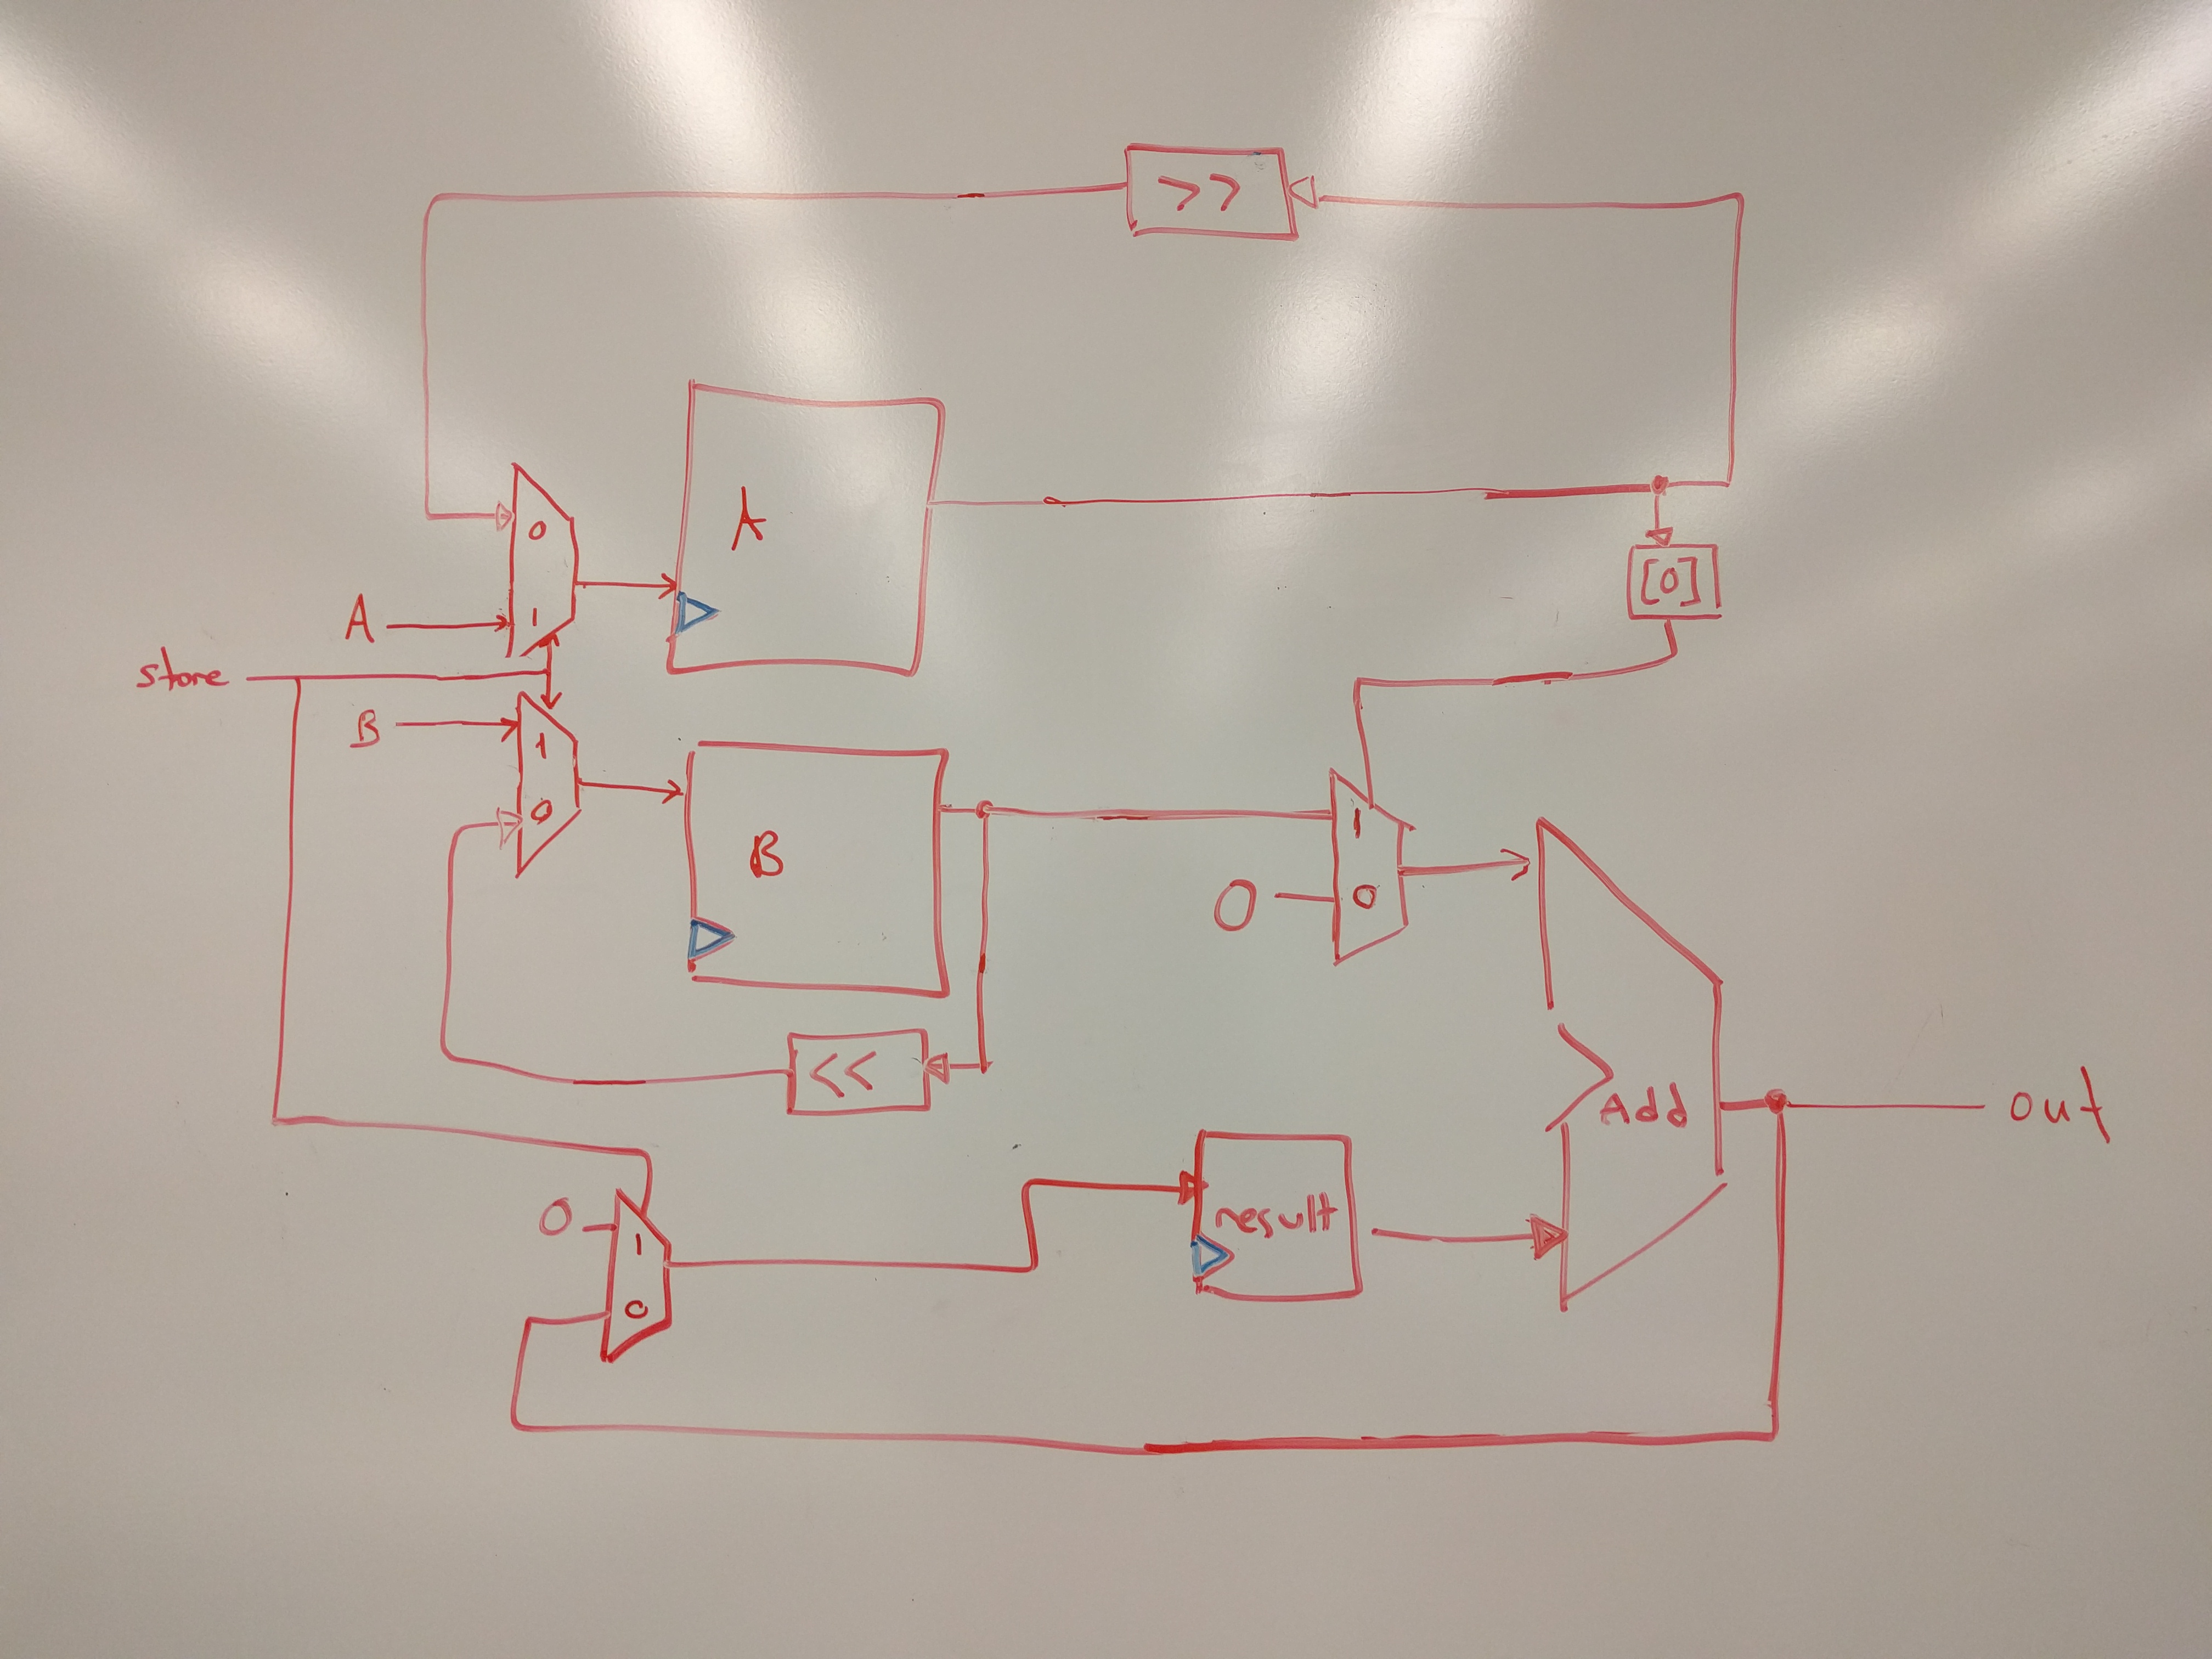 >>
A
0
[0]
A
1
store
B
1
1
0
B
0
0
<<
Add
out
0
1
result
0